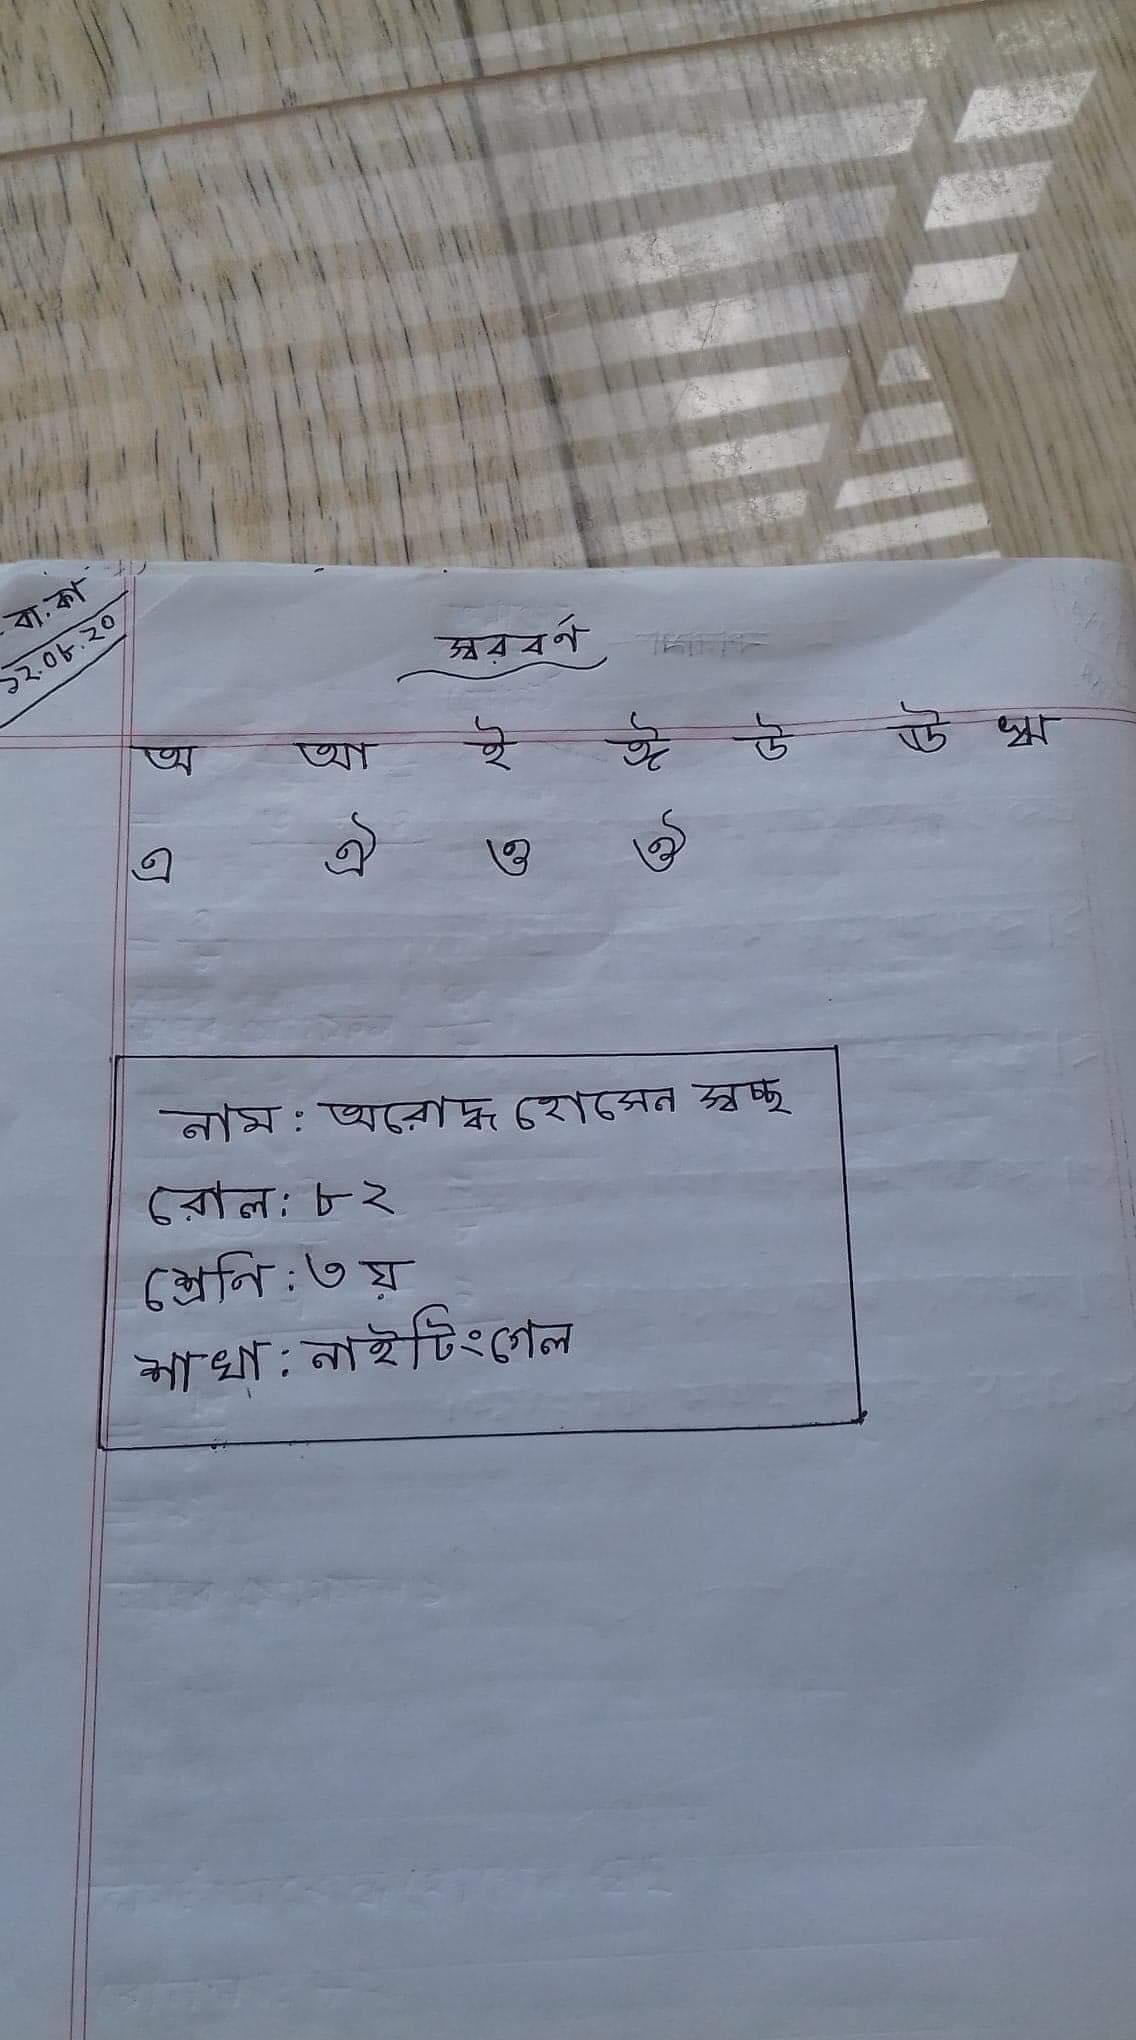 বা.কা
১২.০৮.২০
স্বরবর্ণ
অ আ ই ঈ উ ঊ ঋ
এ ঐ ও ঔ
নাম : অরোদ্ধ হোসেন স্বচ্ছ
রোল: ৮২
শ্রেনি : ৩য়
শাখা : নাইটিংগেল